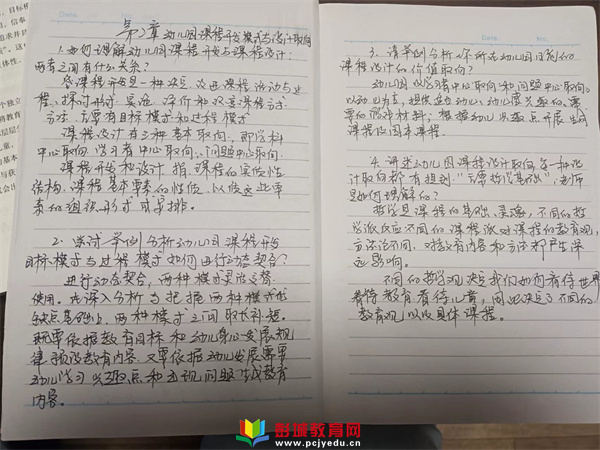 第2章 幼儿园课程开发模式与设计取向
1.如何理解幼儿园课程开发与课程设计?
两者之间有什么关系?
答课程开发是一种决定、改进课程活动与过
程、探讨形式、实施、评价和改变课程方式
方法,主要有目标模式和过程模式
课程设计有三种基本取向,即学科
中心取向、学习者中心取向、问题中心取向.
课程开发和设计指课程的实质性
结构、课程基本要素的性质,以及这些要
素的组织形式或安排。
2.尝试举例分析幼儿园课程开发
目标模式与过程模式如何进行动态契合?
进行动态契合,两种模式灵活交替
使用。在深入分析与把握两种模式优
缺点基础上,两种模式之间取长补短。
既要依据教育目标和幼儿身心发展规
律预设教育内容,又要依据幼儿发展需要
幼儿学习兴趣点和出现问题生成教育
内容。
3.请举例分析你所在幼儿园目前的
课程设计的价值取向?
幼儿园以学习者中心取向和问题中心取向。
以幼儿为主,提供适合幼儿、幼儿感兴趣的、需
要的各种材料;根据幼儿兴趣点开展生成
课程及园本课程。
4.讲述幼儿园课程设计取向每一种设
计取向都有提到“主要哲学基础”,老师
是如何理解的?
哲学是课程的基础、灵魂,不同的哲
学流派反应不同的课程派对课程的教育观,
方法论不同,对教育内容和方法都产生深
远影响。
不同的哲学观决定我们如何看待世界
看待教育、看待儿童,因此决定了不同的
教育观以及具体课程。
彭城教育网
www.pcjyedu.cn